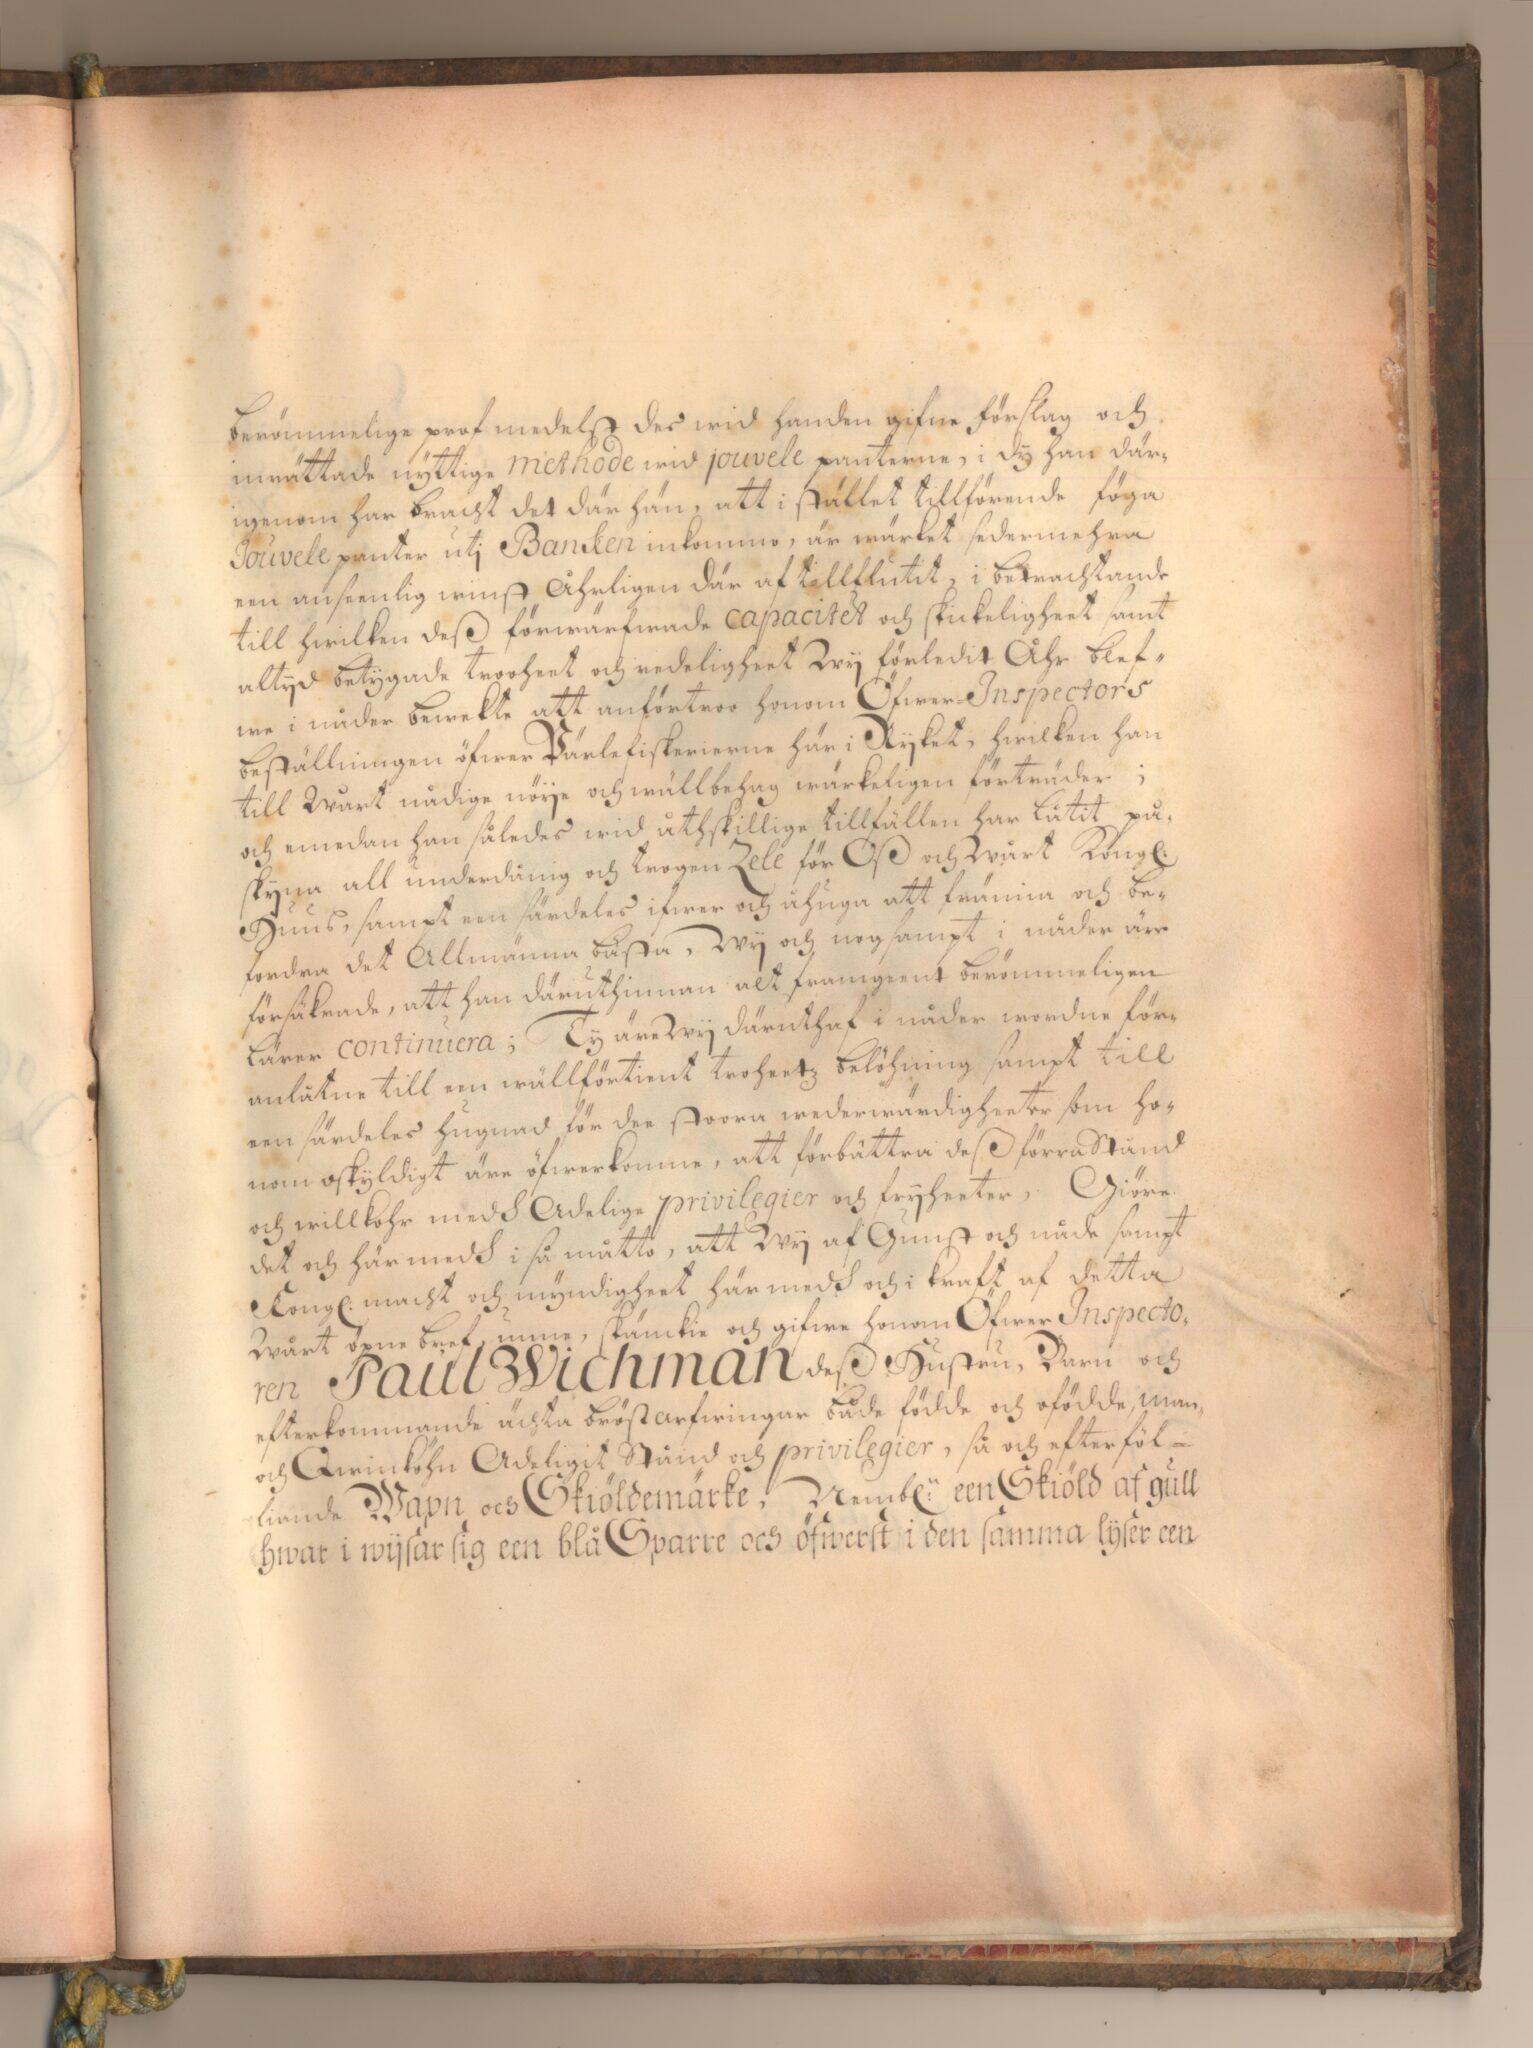 berömmelige prof medelst des wid handen gifne förslag och
inrättade nyttige methode wid jouvele panterne, i dy han där-
igenom har bracht det där hän, att i stället tillförende föga
Jouvele panter utj Bancken inkommo, är wärket sedermehra
een anseenlig winst Åhrligen där af tillflutit, i betrachtande
till hwilken deß förwärfwade capacitet och skickeligheet samt
altijd betygade trooheet och redeligheet Wij förledit Åhr blef-
we i nåder bewekte att anförtroo honom Öfwer-Inspectors
beställningen öfwer Pärlefiskerierne här i Rijket, hwilken han
till Wårt nådige nöije och wällbehag wärkeligen förträder;
och emedan han således wid åthskillige tillfällen har låtit på-
skijna all underdånig och trogen Zele för Oß och Wårt Kongl.
Huus, sampt een särdeles ifwer och åhuga att främia och be-
fordra det Allmänna bästa, Wij och nogsampt i nåder äre
försäkrade, att han däruthinnan alt framgeent berömmeligen
lärer continuera; Ty äre Wij däruthaf i nåder wordne för-
anlåtne till een wällförtient troheetz belöhning sampt till
een särdeles hugnad för dee stoora wederwärdigheeter som ho-
nom oskyldigt äre öfwerkomne, att förbättra deß förra Stånd
och willkohr medh Adelige privilegier och frijheeter, Giöre
det och härmedh i så måtto, att Wij af Gunst och nåde sampt
Kongl. macht och myndigheet härmedh och i kraft af detta
Wårt öpne bref, unne, skänckie och gifwe honom Öfwer Inspecto-
ren Paul Wichman deß Hustru, Barn och
efterkommande ächta bröst arfwingar både födde och ofödde, man-
och Qwinköhn Adeligit Stånd och privilegier, så och efterföl-
liande Wapn och Skiöldemärke, Nembl: een Skiöld af gull
hwar i wijsar sig een blå Sparre och öfwerst i den samma lyser een